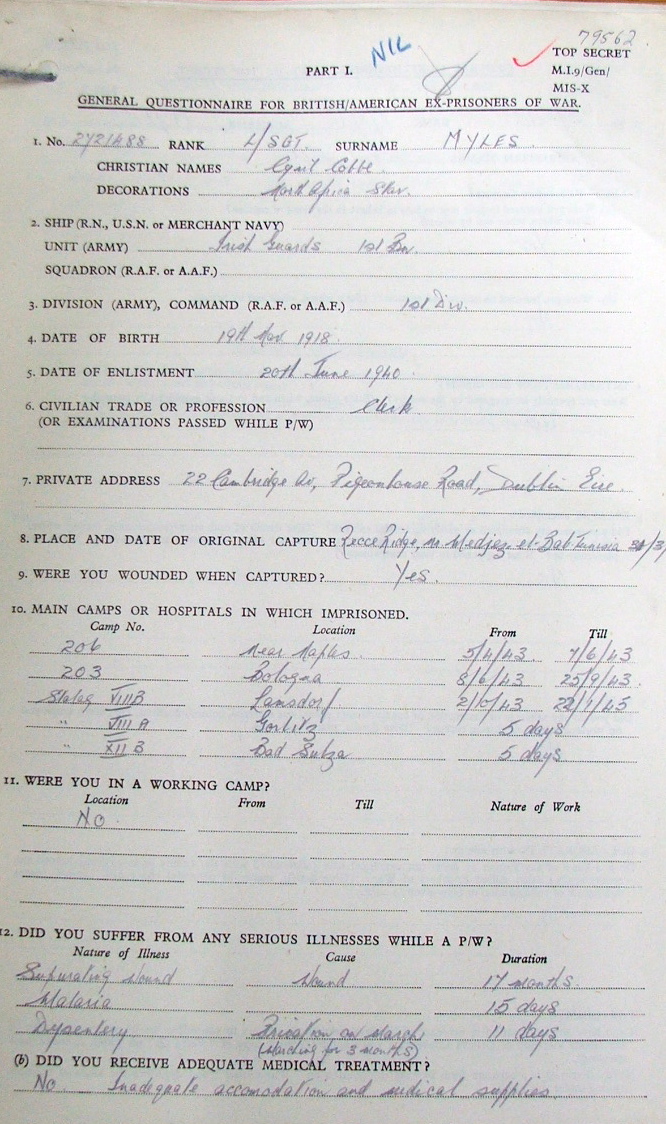 79562
NIL
TOP SECRET
PART I.
M.I.9/Gen/
MIS-X
GENERAL QUESTIONNAIRE FOR BRITISH/AMERICAN EX-PRISONERS OF WAR.
1. No. 2721488 RANK L/SGT. SURNAME MYLES.
CHRISTIAN NAMES Cyril Cobbe.
DECORATIONS North Africa Star.
2. SHIP (R.N., U.S.N. or MERCHANT NAVY)
UNIT (ARMY) Irish Guards 1st Bn.
SQUADRON (R.A.F. or A.A.F.)
3. DIVISION (ARMY), COMMAND (R.A.F. or A.A.F.) 1st Div.
4. DATE OF BIRTH 19th 1918.
5. DATE OF ENLISTMENT 20th June 1940.
6. CIVILIAN TRADE OR PROFESSION Clerk
(OR EXAMINATIONS PASSED WHILE P/W)
7. PRIVATE ADDRESS 22 Cambridge Av, Pigeonhouse Road, Dublin Eire.
8. PLACE AND DATE OF ORIGINAL CAPTURE Recce Ridge, nr Medjez-el-Bab Tunisia /3/
9. WERE YOU WOUNDED WHEN CAPTURED? Yes.
10. MAIN CAMPS OR HOSPITALS IN WHICH IMPRISONED.
Camp No. Location From Till
206 Near Naples. 5/4/43. 7/6/43
203 Bologna 8/6/43 25/9/43.
Stalag VIIIB Lansdorf 2/10/43 22/1/45
" VIII A Gorlitz 5 days
" XII B Bad Sulza 5 days
11. WERE YOU IN A WORKING CAMP?
Location From Till Nature of Work
No.
12. DID YOU SUFFER FROM ANY SERIOUS ILLNESSES WHILE A P/W?
Nature of Illness Cause Duration
Supurating Wound Wound 17 months.
Malaria 15 days
Dysentery Privation on March 11 days
(Marching for 3 months)
(b) DID YOU RECEIVE ADEQUATE MEDICAL TREATMENT?
No Inadequate accomodation and medical supplies.